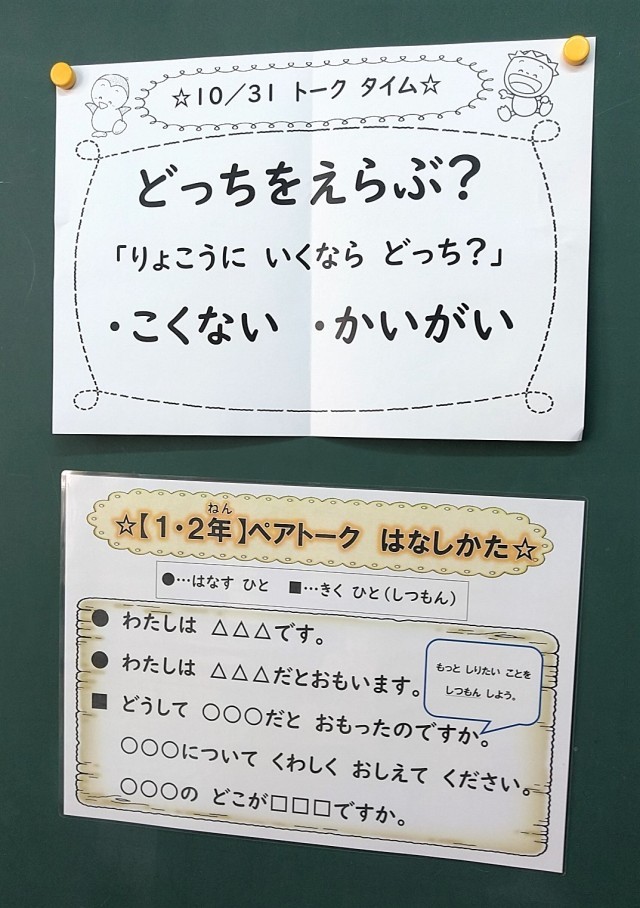 ☆10/31 トーク タイム☆
どっちをえらぶ?
「りょこうに いくなら どっち?」
・こくない ・かいがい
ねん
☆【1・2年】ペアトーク はなしかた☆
●…はなす ひと ■…きく ひと(しつもん)
● わたしは △△△です。
● わたしは △△△だとおもいます。
もっと しりたい ことを
しつもん しよう。
■ どうして ○○○だと おもったのですか。
○○○について くわしく おしえて ください。
○○○の どこが□□□ですか。